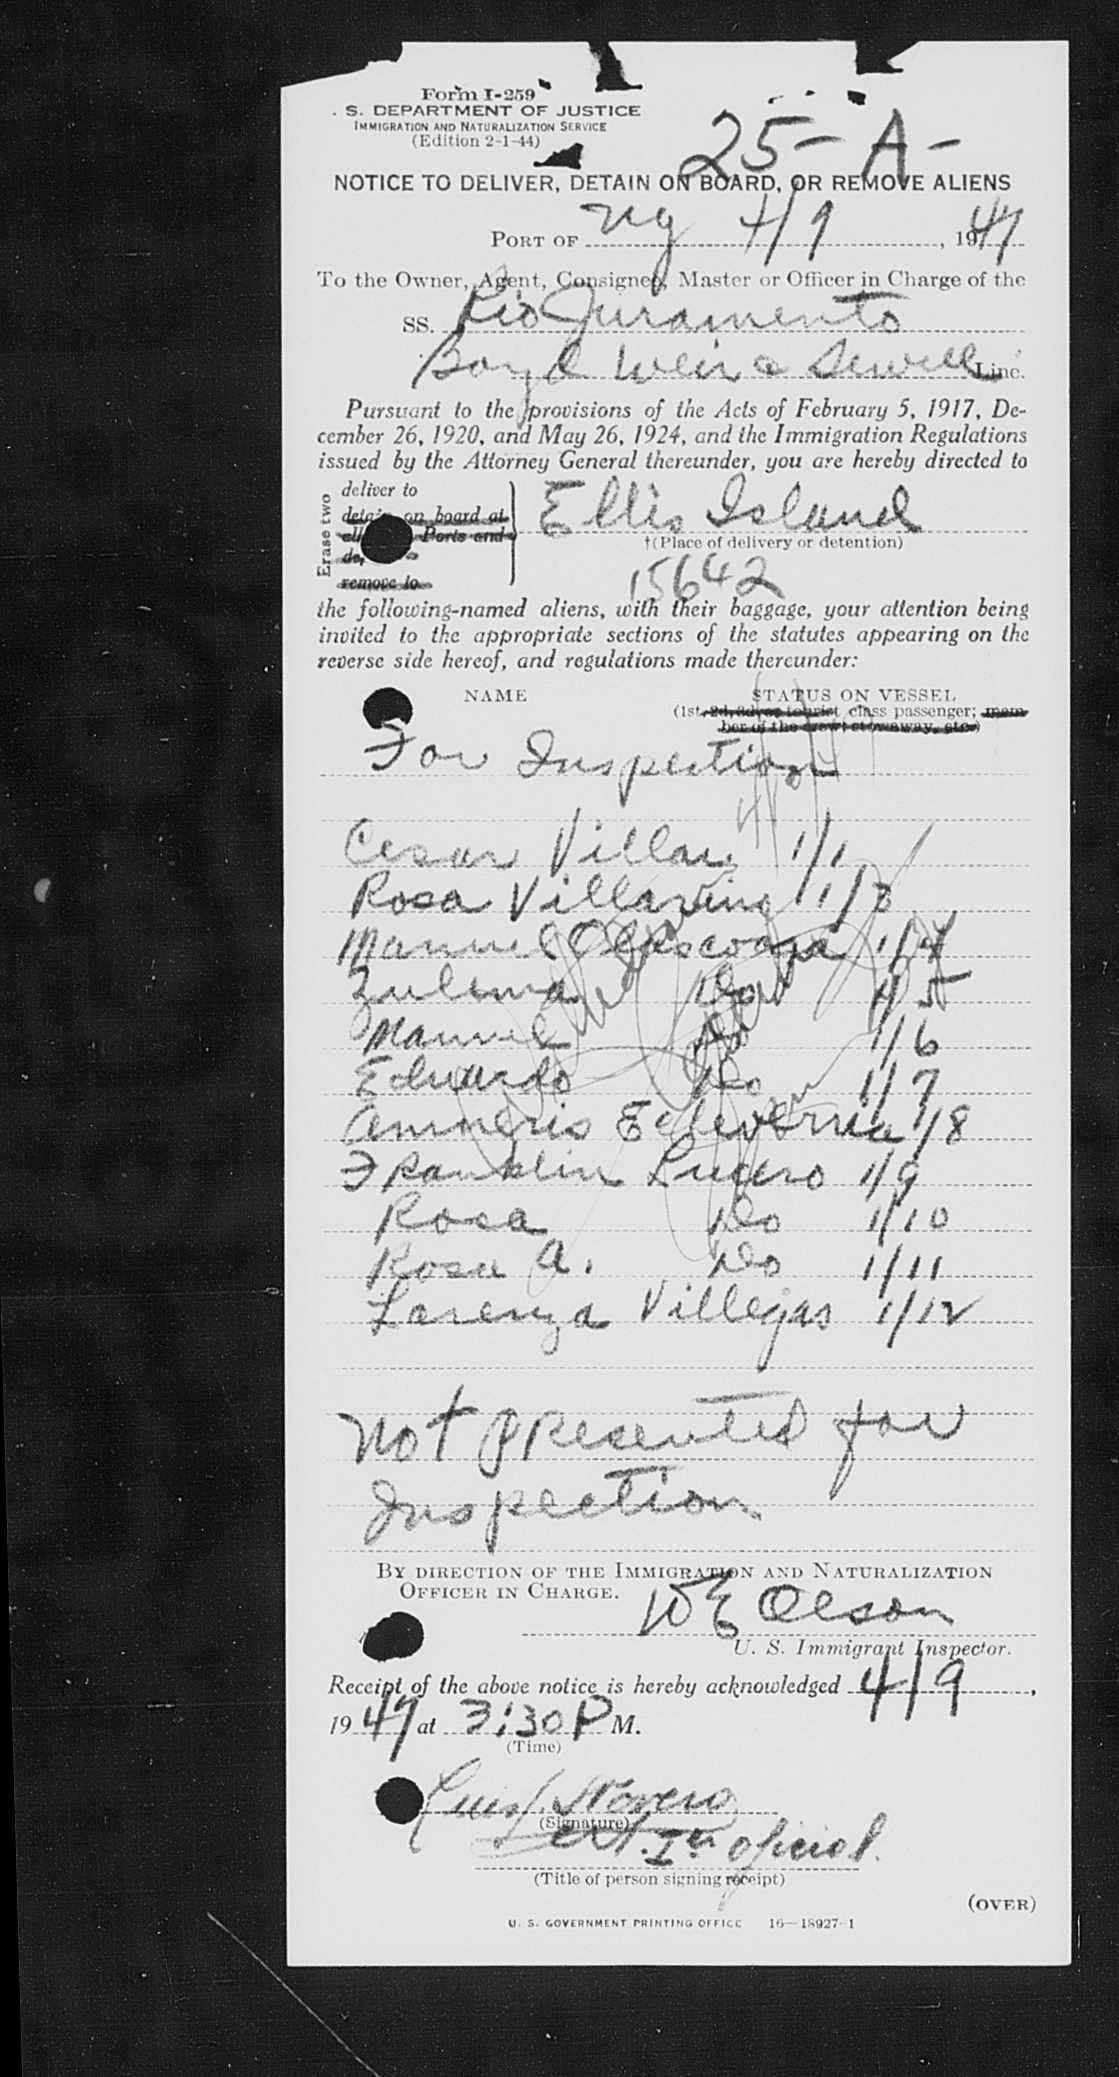 Form I-259
. S. DEPARTMENT OF JUSTICE
IMMIGRATION AND NATURALIZATION SERVICE
(Edition 2-1-44)
25-A-
NOTICE TO DELIVER, DETAIN ON BOARD, OR REMOVE ALIENS
PORT OF NY 4/9, 1947
To the Owner, Agent, Consignee, Master or Officer in Charge of the
SS. Rio Juramento
Boyd Weir & Sewell Line.
Pursuant to the provisions of the Acts of February 5, 1917, De-
cember 26, 1920, and May 26, 1924, and the Immigration Regulations
issued by the Attorney General thereunder, you are hereby directed to
Erase two
deliver to
detain on board at
all Ports and
de
remove to
Ellis Island
†(Place of delivery or detention)
15642
the following-named aliens, with their baggage, your attention being
invited to the appropriate sections of the statutes appearing on the
reverse side hereof, and regulations made thereunder:
NAME STATUS ON VESSEL
(1st, 2d, 3d, or tourist class passenger; mem-
ber of the crew; stowaway, etc.)
For Inspection
Cesar Villar 1/1
Rosa Villarino 1/3
Manuel 1/4
Zulema Do 1/5
Manuel Do 1/6
Eduardo Do 1/7
Amneris Echeverria 1/8
Franklin Lucero 1/9
Rosa Do 1/10
Rosa A. Do 1/11
Lorenza Villegas 1/12
Not Presented for
Inspection
BY DIRECTION OF THE IMMIGRATION AND NATURALIZATION
OFFICER IN CHARGE.
WE Olson
U. S. Immigrant Inspector.
Receipt of the above notice is hereby acknowledged 4/9,
1947 at 3:30 P M.
(Time)
Luis
(Signature)
oficial.
(Title of person signing receipt)
(OVER)
U. S. GOVERNMENT PRINTING OFFICE 16—18927-1